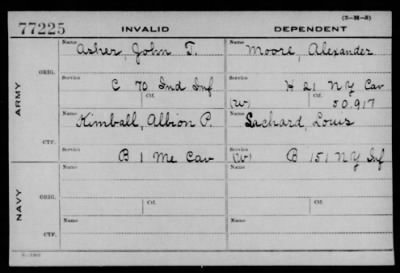 (3-M-3)
77225 INVALID DEPENDENT
Name Asher, John T. Name Moore, Alexander
ORIG. Service C 70 Ind Inf Service H 21 N Y Cav
Ctf. (W) Ctf. 50,917
ARMY
Name Kimball, Albion P. Name Lachard, Louis
CTF. Service B 1 Me Cav Service (W) B 151 N Y Inf
Name Name
ORIG. Service Ctf. Service Ctf.
NAVY
Name Name
CTF. Service Service